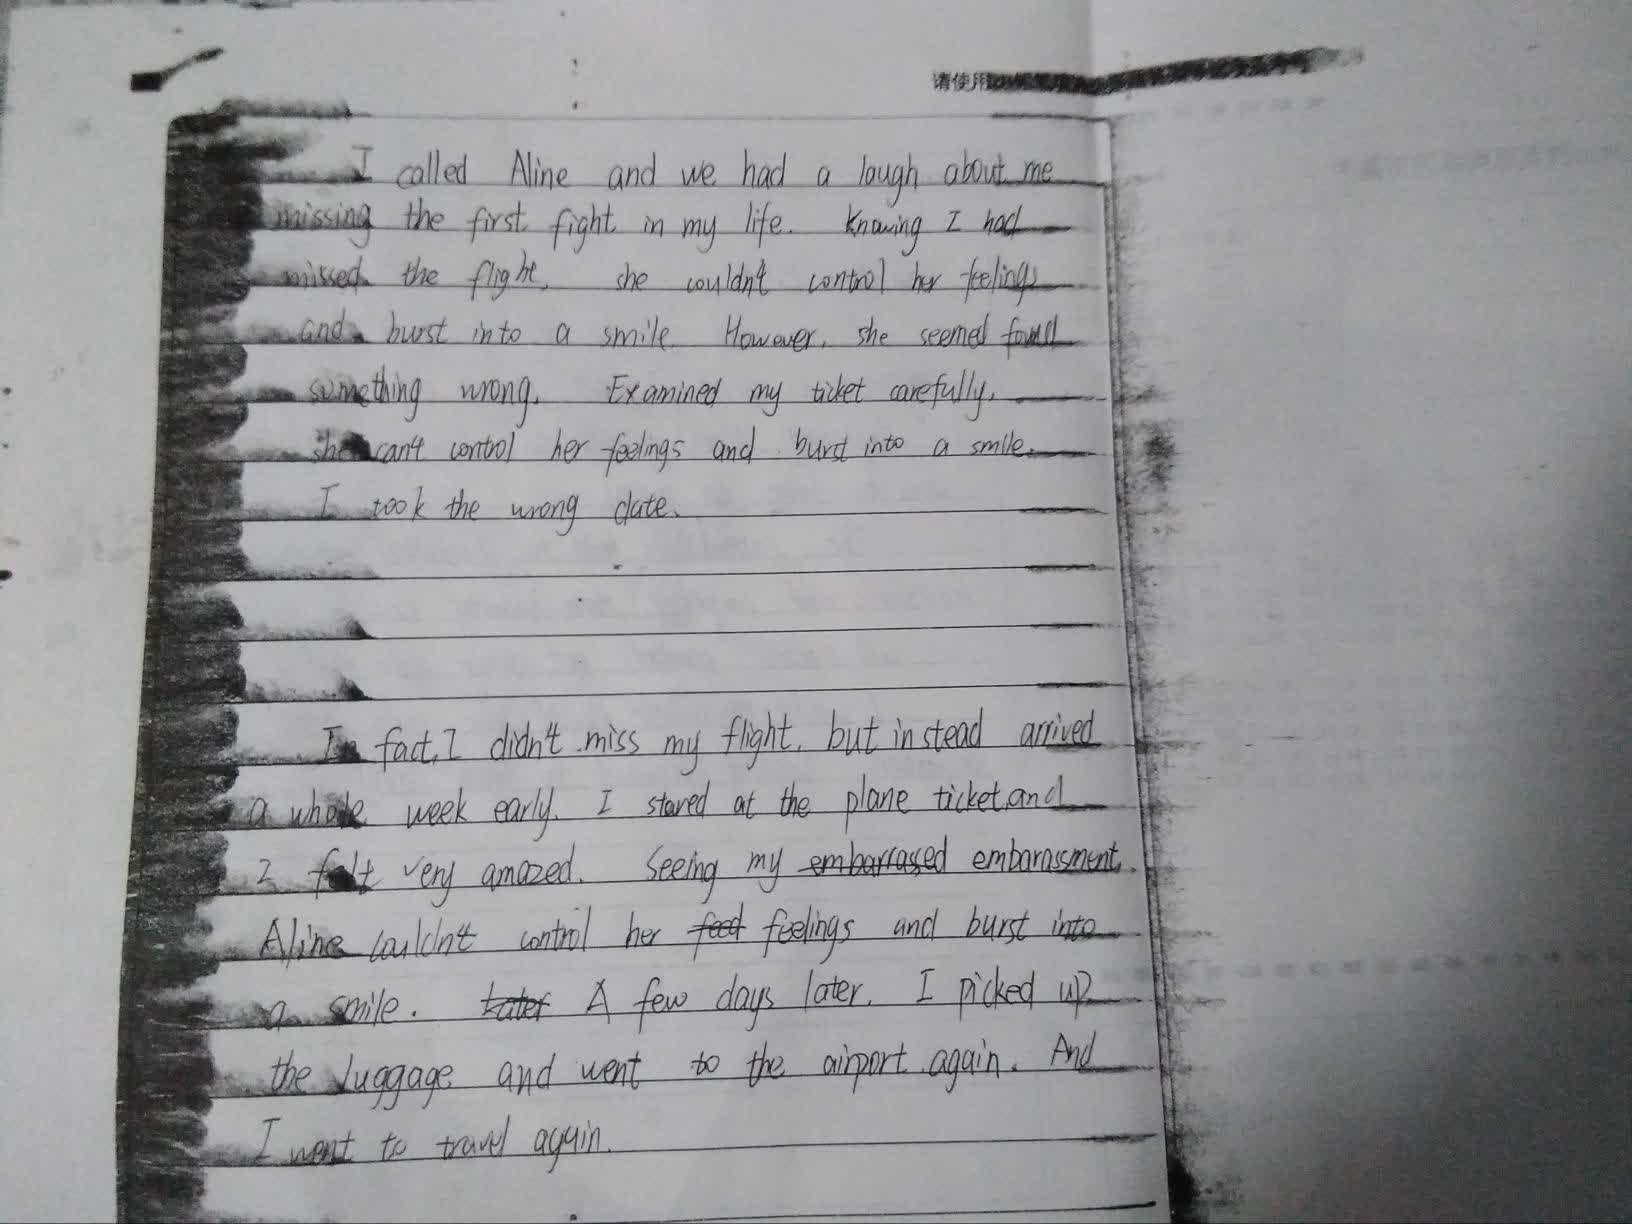 请使用
I called Aline and we had a laugh about me
missing the first fight in my life. Knowing I had
missed the flight, she couldn't control her feelings
and burst into a smile. However, she seemed found
something wrong. Examined my ticket carefully,
she can't control her feelings and burst into a smile.
I took the wrong date.
In fact, I didn't miss my flight, but instead arrived
a whole week early. I stared at the plane ticket, and
I felt very amazed. Seeing my embarrassed embarassment,
Aline couldn't control her feed feelings and burst into
a smile. Later A few days later, I picked up
the luggage and went to the airport again. And
I went to travel again.